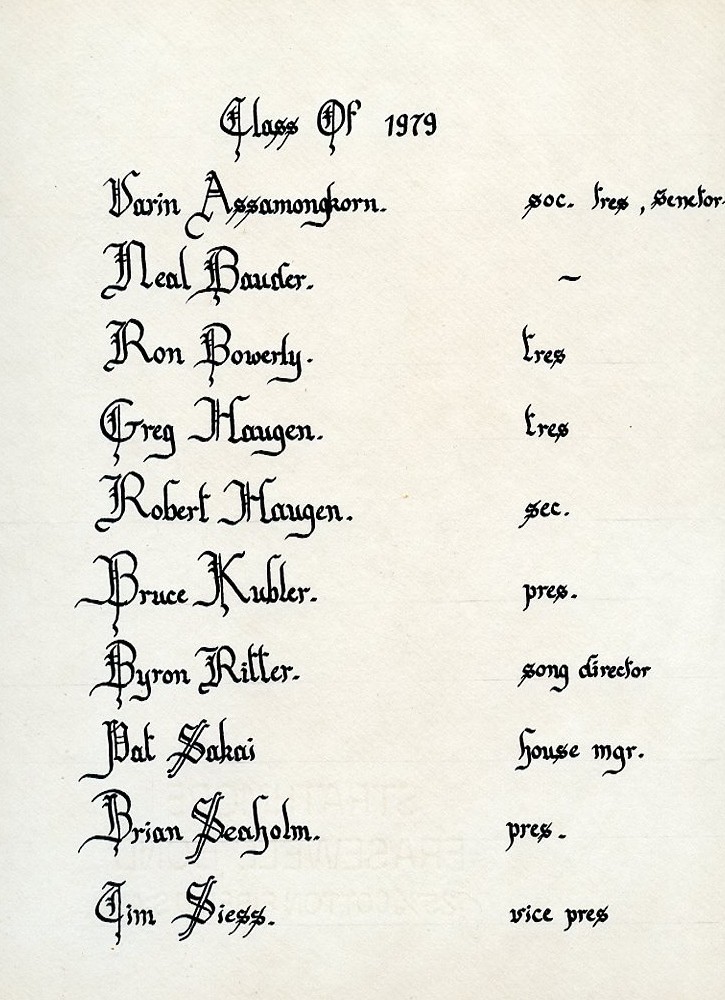 Class Of 1979
Varin Assamongkorn. soc. tres, senetor
Neal Bauder. ~
Ron Bowerly. tres
Greg Haugen. tres
Robert Haugen. sec.
Bruce Kubler. pres.
Byron Ritter. song director
Pat Sakai house mgr.
Brian Seaholm. pres.
Tim Siess. vice pres